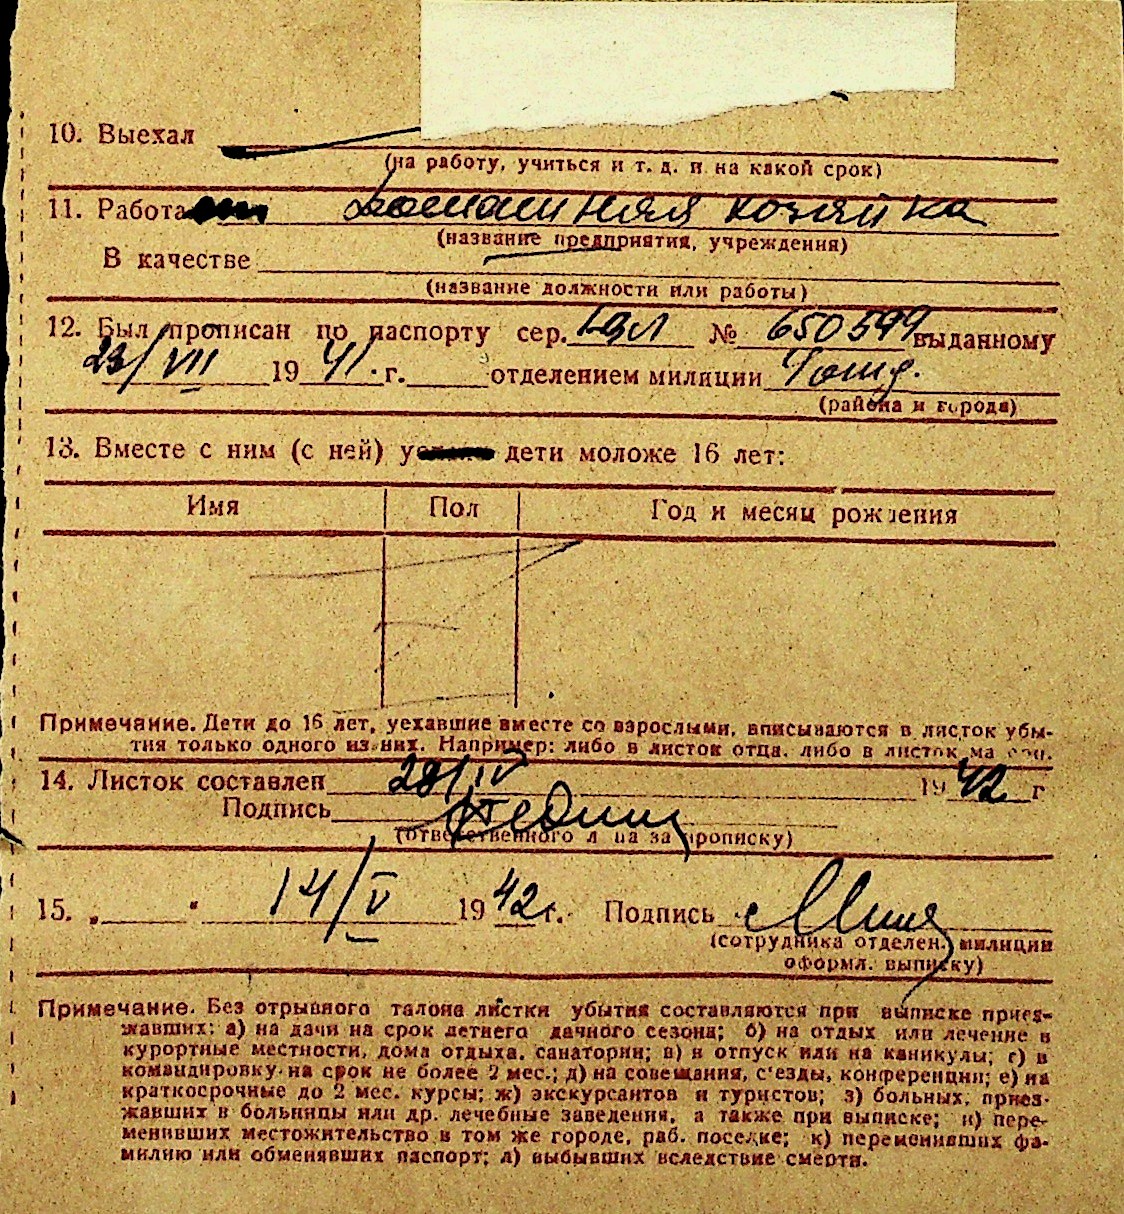 10. Выехал
(на работу, учиться и т. д. и на какой срок)
11. Работа домашняя хозяйка
(название предприятия, учреждения)
В качестве
(название должности или работы)
12. Был прописан по паспорту сер. № 650599 выданному
23/VII 1941 г. отделением милиции
(района и города)
13. Вместе с ним (с ней) дети моложе 16 лет:
Имя Пол Год и месяц рождения
Примечание. Дети до 16 лет, уехавшие вместе со взрослыми, вписываются в листок убы-
тия только одного из них. Например: либо в листок отца, либо в листок
14. Листок составлен 28/IV 1942 г
Подпись
(ответственного лица за прописку)
15. „ " 14/V 1942 г. Подпись
(сотрудника отделен. милиции
оформл. выписку)
Примечание. Без отрывного талона листки убытия составляются при выписке приез-
жавших: а) на дачи на срок летнего дачного сезона; б) на отдых или лечение в
курортные местности, дома отдыха, санатории; в) в отпуск или на каникулы; г) в
командировку на срок не более 2 мес.; д) на совещания, с'езды, конференции; е) на
краткосрочные до 2 мес. курсы; ж) экскурсантов и туристов; з) больных, приез-
жавших в больницы или др. лечебные заведения, а также при выписке; и) пере-
менивших местожительство в том же городе, раб. поселке; к) переменивших фа-
милию или обменявших паспорт; л) выбывших вследствие смерти.